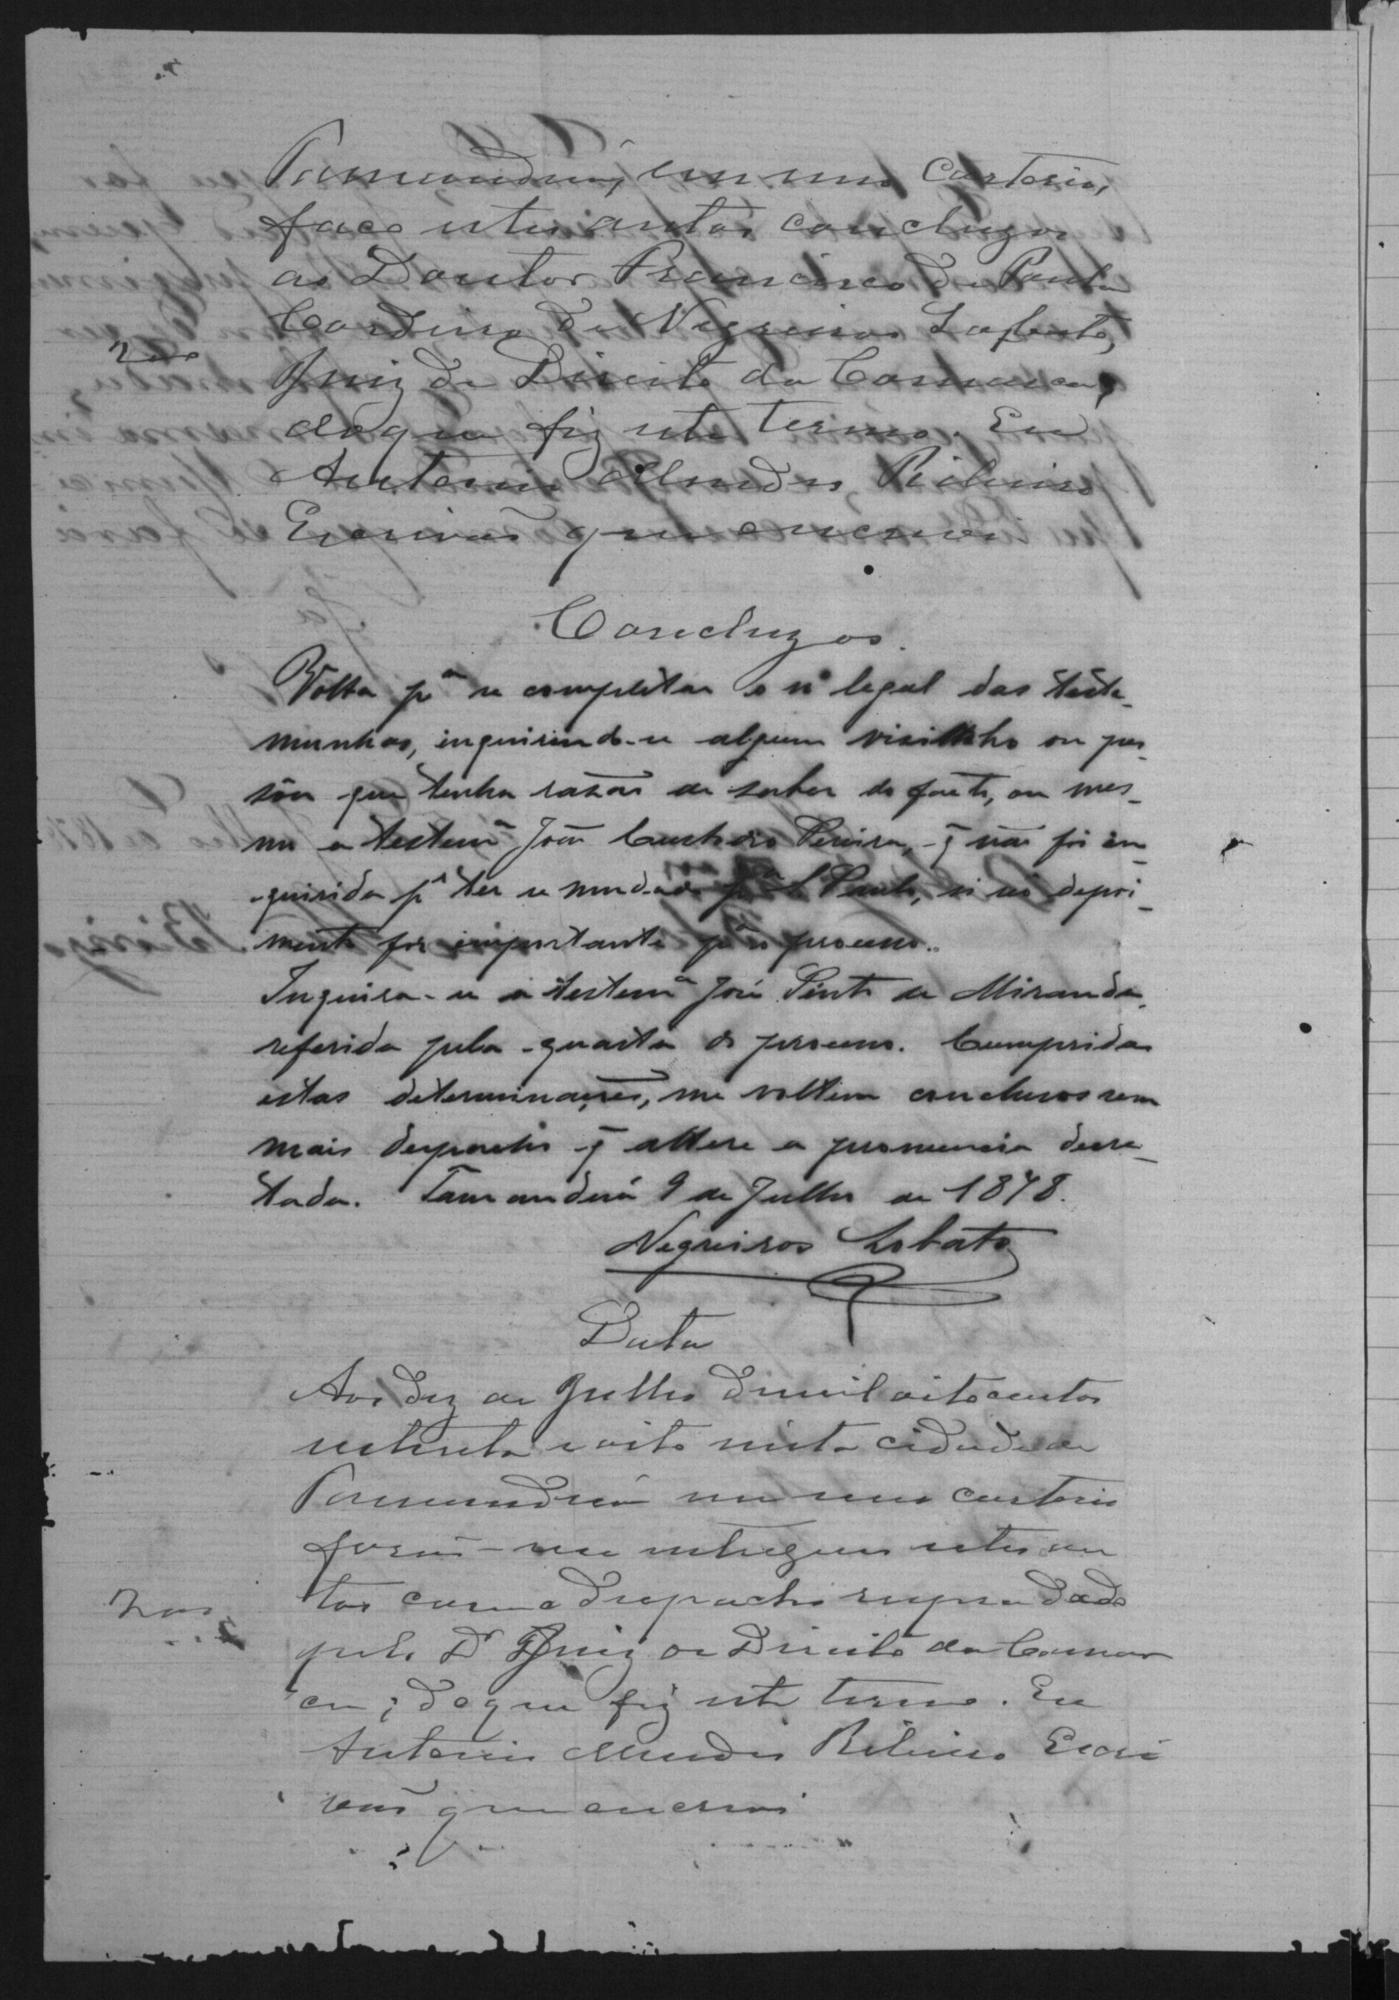 Tamanduá, em meu cartorio,
faço estes autos concluzos
ao Doutor Francisco de Paula
Cordeiro de Negreiros Lobato,
Juiz de Direito da Comarca,
200
doque fiz este termo. Eu
Antonio Mendes Ribeiro
Escrivaõ que escrevi
Concluzos.
Volta pª se completar o nº legal das teste-
munhas, inquirindo-se algum visinho ou pes-
sôa que tenha razaõ de saber do facto, ou mes-
mo a testemª Joaõ Custodio Pereira, q̃ naõ foi in-
quirida pʳ ter se mudado pª S. Paulo, si seo depoi-
mento for importante pª o processo.
Inquira-se a testemª José Pinto de Miranda
referida pela quarta do processo. Cumpridas
estas determinações, me voltem conclusos sem
mais despacho q̃ altere a pronuncia decre-
tada. Tamanduá 9 de Julho de 1878.
Negreiros Lobato
Data
Aos dez de Julho de mil oitocentos
setenta e oito nesta cidade de
Tamanduá em meu cartorio
foraõ-me entregues estes au
tos com o despacho supra dado
200
pelo Dʳ Juiz de Direito da Comar
ca; doque fiz este termo. Eu
Antonio Mendes Ribeiro Escri
vaõ que escrevi